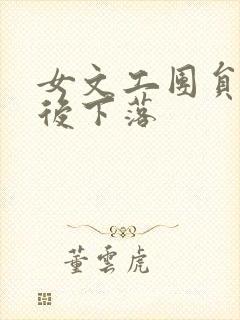 女文工團員
後下落
董雲虎